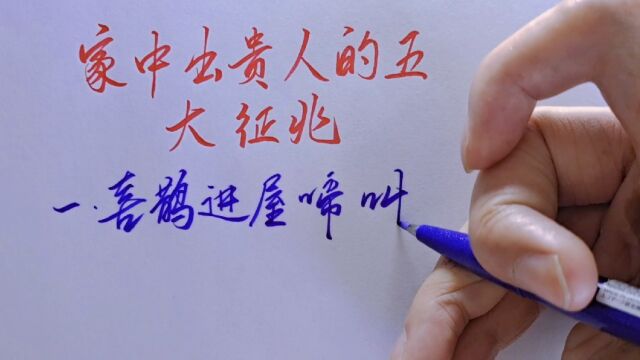 家中出贵人的五
大征兆
一.喜鹊进屋啼叫